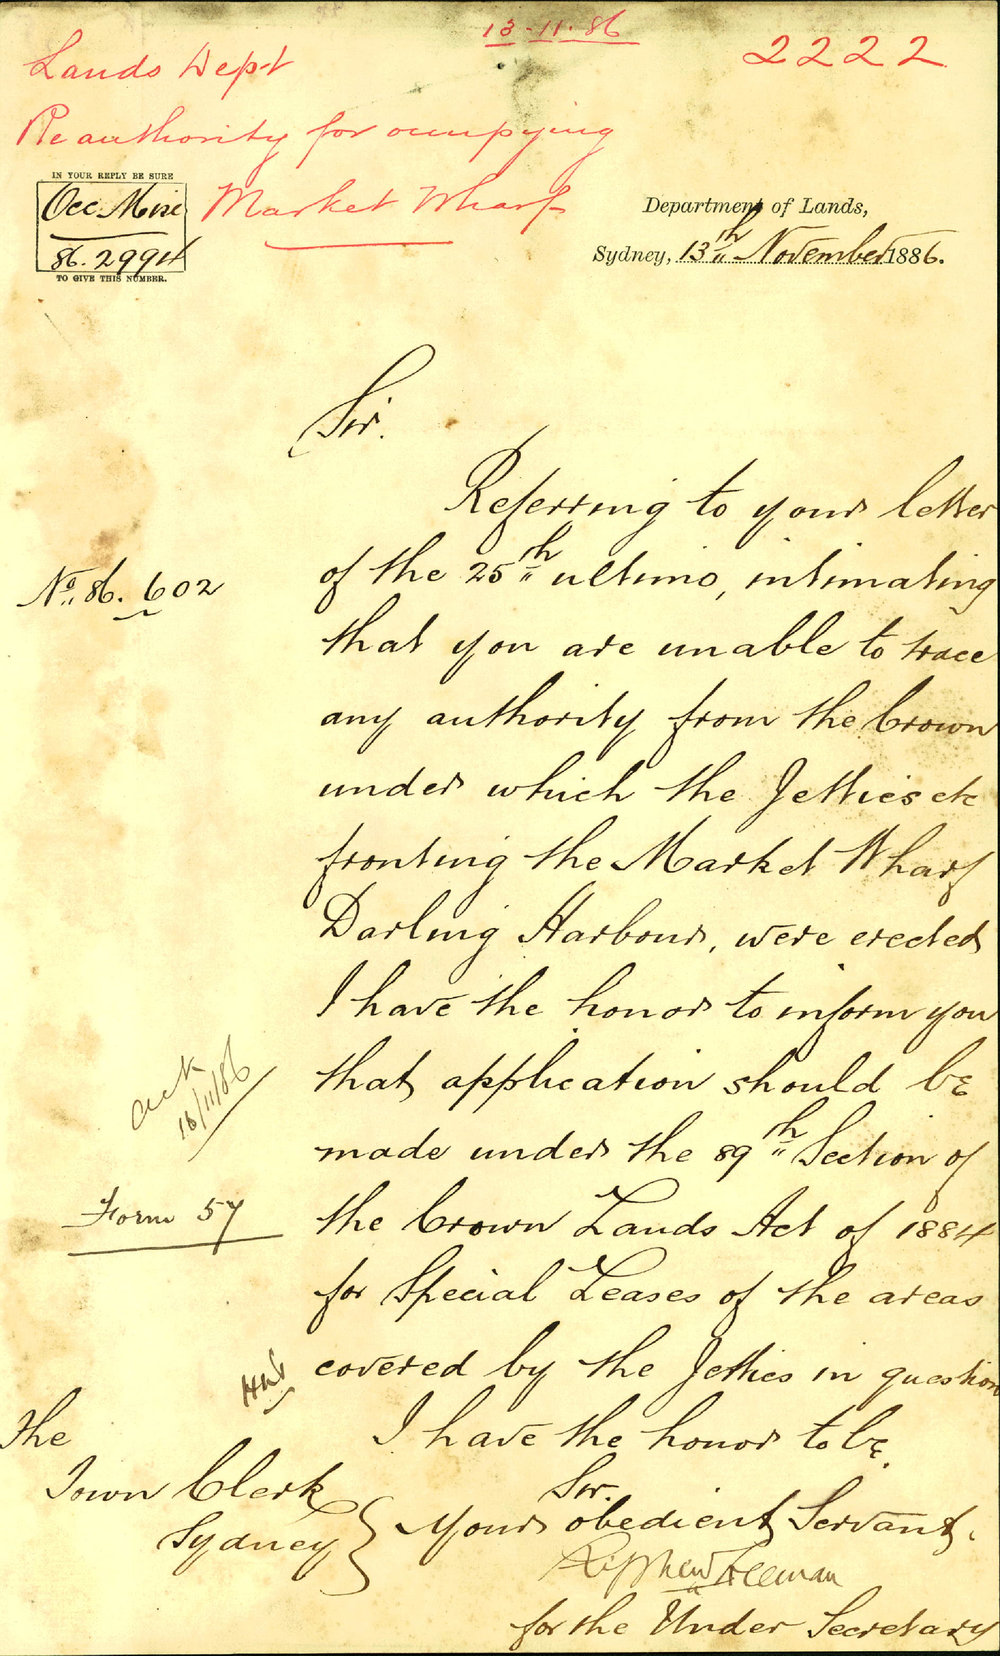 13-11-86
2222
Lands Dept
Re authority for occupying
Market Wharf
IN YOUR REPLY BE SURE
Occ. Misc
86. 2994
TO GIVE THIS NUMBER.
Department of Lands,
Sydney, 13th November 1886.
Sir.
Referring to your letter
No. 86. 602
of the 25th ultimo, intimating
that you are unable to trace
any authority from the Crown
under which the Jetties etc
fronting the Market Wharf
Darling Harbour, were erected
I have the honor to inform you
that application should be
Ack
16/11/86
made under the 89th Section of
Form 57
the Crown Lands Act of 1884
for Special Leases of the areas
covered by the Jetties in question
I have the honor to be,
Sir.
Your obedient Servant,
for the Under Secretary
The
Town Clerk
Sydney